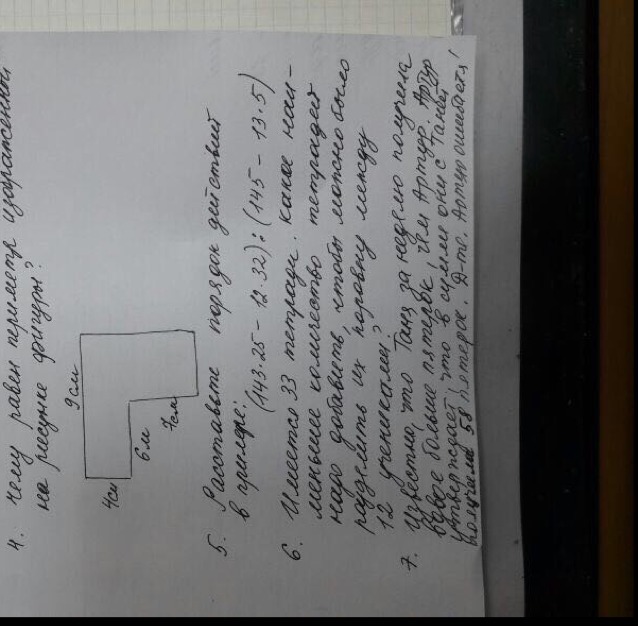 4. Чему равен периметр изображенной
на рисунке фигуры?
9 см
4см
6 м
7см
5. Расставьте порядок действий
в примере:
(143·25 - 12·32):(145 - 13·5)
6. Имеется 33 тетради. Какое наи-
меньшее количество тетрадей
надо добавить, чтобы можно было
разделить их поровну между
12 учениками?
7. Известно, что Таня за неделю получила
вдвое больше пятерок, чем Артур. Артур
утверждает, что в сумме они с Таней
получили 58 пятерок. Д-ть. Артур ошибается!